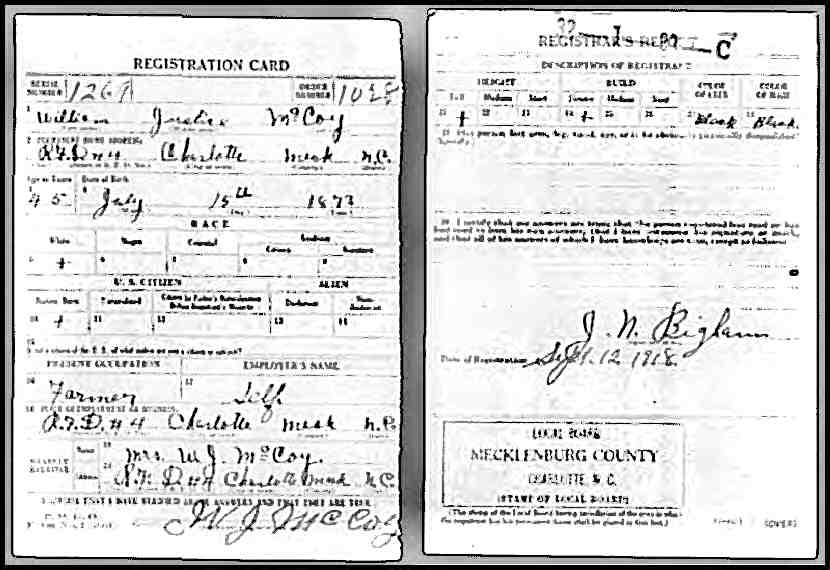 REGISTRATION CARD
SERIAL NUMBER 1269 ORDER NUMBER 1028
1 William Justice McCoy
2 PERMANENT HOME ADDRESS:
R.F.D #4 Charlotte Meck N.C.
Age in Years Date of Birth
45 July 15th 1873
RACE
White Negro Oriental Indian
Citizen Noncitizen
5 + 6 7 8 9
U. S. CITIZEN ALIEN
Native Born Naturalized Citizen by Father's Naturalization Before Registrant's Majority Declarant Non-declarant
10 + 11 12 13 14
15
If not a citizen of the U. S. of what nation are you a citizen or subject?
PRESENT OCCUPATION EMPLOYER'S NAME
16 Farmer 17 Self
18 PLACE OF EMPLOYMENT OR BUSINESS:
R.F.D. #4 Charlotte Meck N.C.
NEAREST RELATIVE Name 19 Mrs. W.J. McCoy
Address 20 R.F.D #4 Charlotte Meck N.C.
I AFFIRM THAT I HAVE VERIFIED ABOVE ANSWERS AND THAT THEY ARE TRUE
W J McCoy
C
REGISTRAR'S REPORT
DESCRIPTION OF REGISTRANT
HEIGHT BUILD COLOR OF EYES COLOR OF HAIR
Tall Medium Short Slender Medium Stout
21 + 22 23 24 + 25 26 27 Black 28 Black.
29 Has person lost arm, leg, hand, eye, or is he obviously physically disqualified?
(Specify.)
30. I certify that my answers are true; that the person registered has read or has
had read to him his own answers; that I have witnessed his signature or mark,
and that all of his answers of which I have knowledge are true, except as follows:
J. N. Bigham
Date of Registration Sept. 12 1918.
LOCAL BOARD
MECKLENBURG COUNTY
CHARLOTTE, N. C.
(STAMP OF LOCAL BOARD)
(The stamp of the Local Board having jurisdiction of the area in which
the registrant has his permanent home shall be placed in this box.)
(OVER)